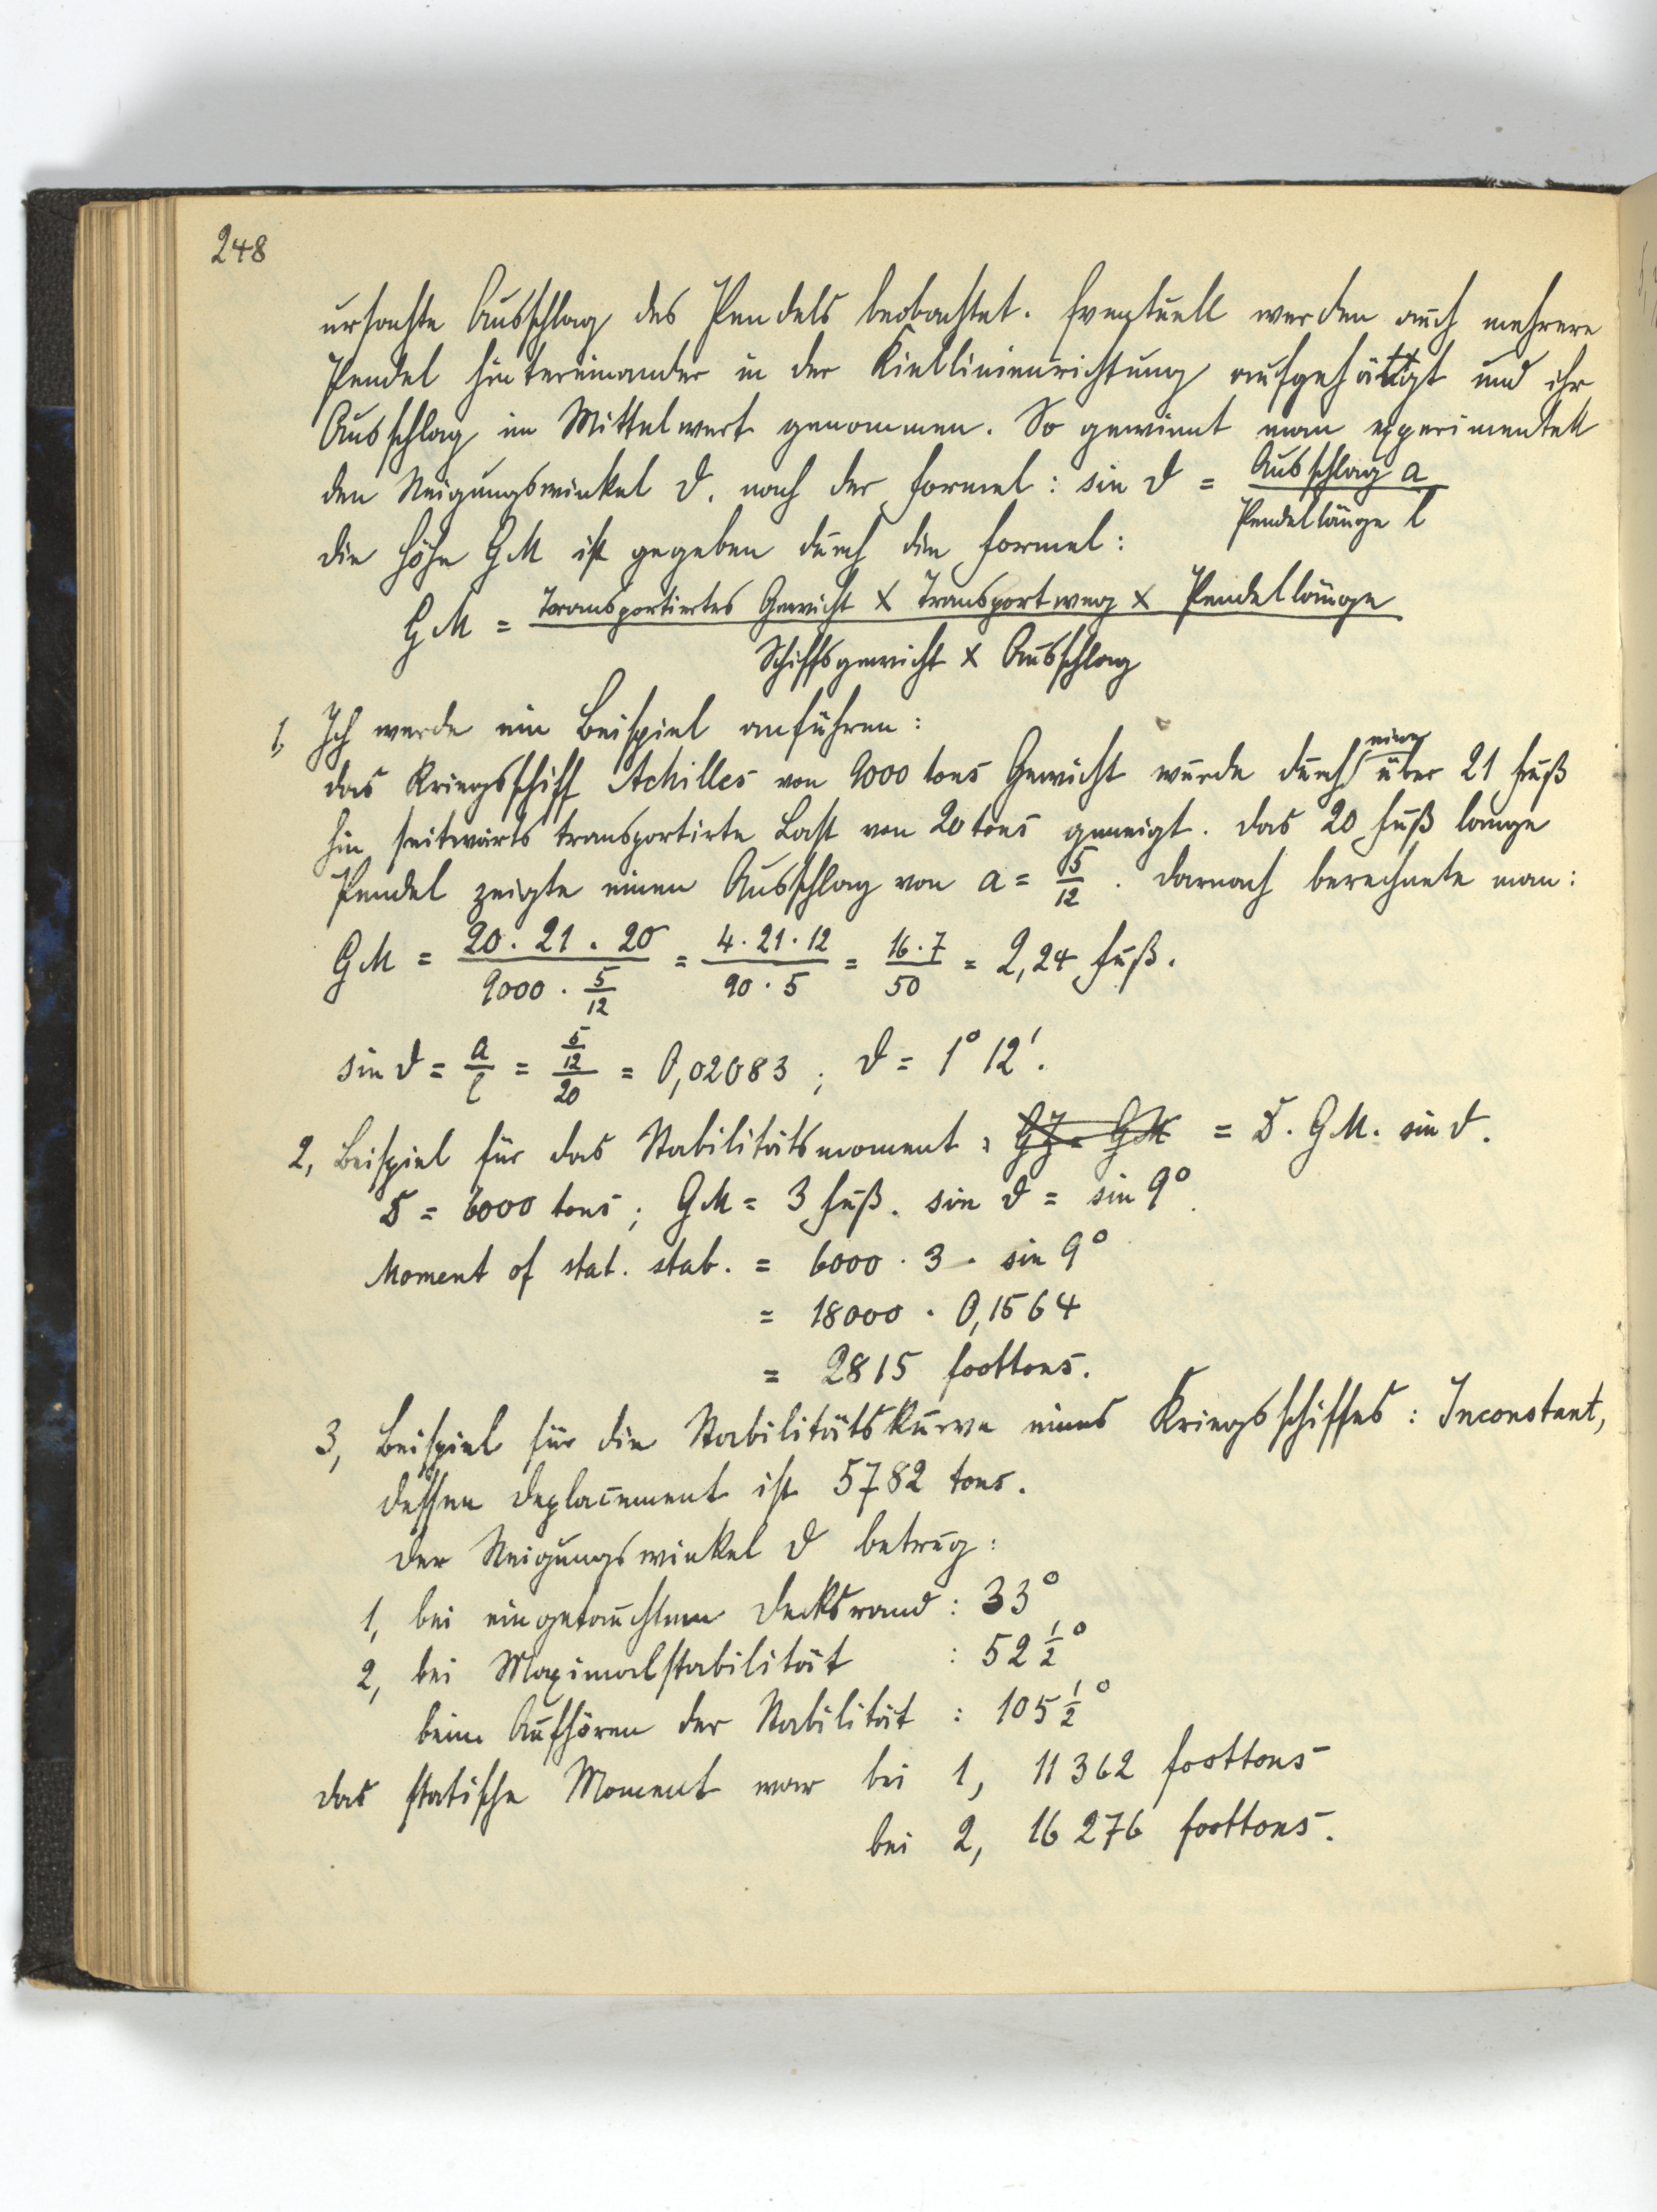 248
ursachte Ausschlag des Pendels beobachtet. Eventuell werden auch mehrere
Pendel hintereinander in der Kiellinienrichtung aufgehängt und ihr
Ausschlag im Mittelwert genommen. So gewinnt man experimentell
den Neigungswinkel ϑ, nach der Formel: sin ϑ = Ausschlag a / Pendellänge l
Die Höhe GM ist gegeben durch die Formel:
GM = Transportiertes Gewicht × Transportweg × Pendellänge / Schiffsgewicht × Ausschlag
1, Ich werde ein Beispiel anführen:
das Kriegsschiff Achilles von 9000 tons Gewicht wurde durch eine über 21 Fuß
hin seitwärts transportirte Last von 20 tons geneigt. Das 20 Fuß lange
Pendel zeigte einen Ausschlag von a = 5/12. Darnach berechnete man:
GM = 20 · 21 · 20 / 9000 · 5/12 = 4 · 21 · 12 / 90 · 5 = 16 · 7 / 50 = 2,24 Fuß.
sin ϑ = a/l = 5/12 / 20 = 0,02083; ϑ = 1° 12'.
2, Beispiel für das Stabilitätsmoment: = D · GM · sin ϑ.
D = 6000 tons; GM = 3 Fuß. sin ϑ = sin 9°.
Moment of stat. stab. = 6000 · 3 · sin 9°
= 18000 · 0,1564
= 2815 foottons.
3, Beispiel für die Stabilitätskurve eines Kriegsschiffes: Inconstant,
dessen Deplacement ist 5782 tons.
Der Neigungswinkel ϑ betrug:
1, bei eingetauchtem Decksrand: 33°
2, bei Maximalstabilität : 52 1/2°
beim Aufhören der Stabilität : 105 1/2°
Das statische Moment war bei 1, 11362 foottons
bei 2, 16276 foottons.